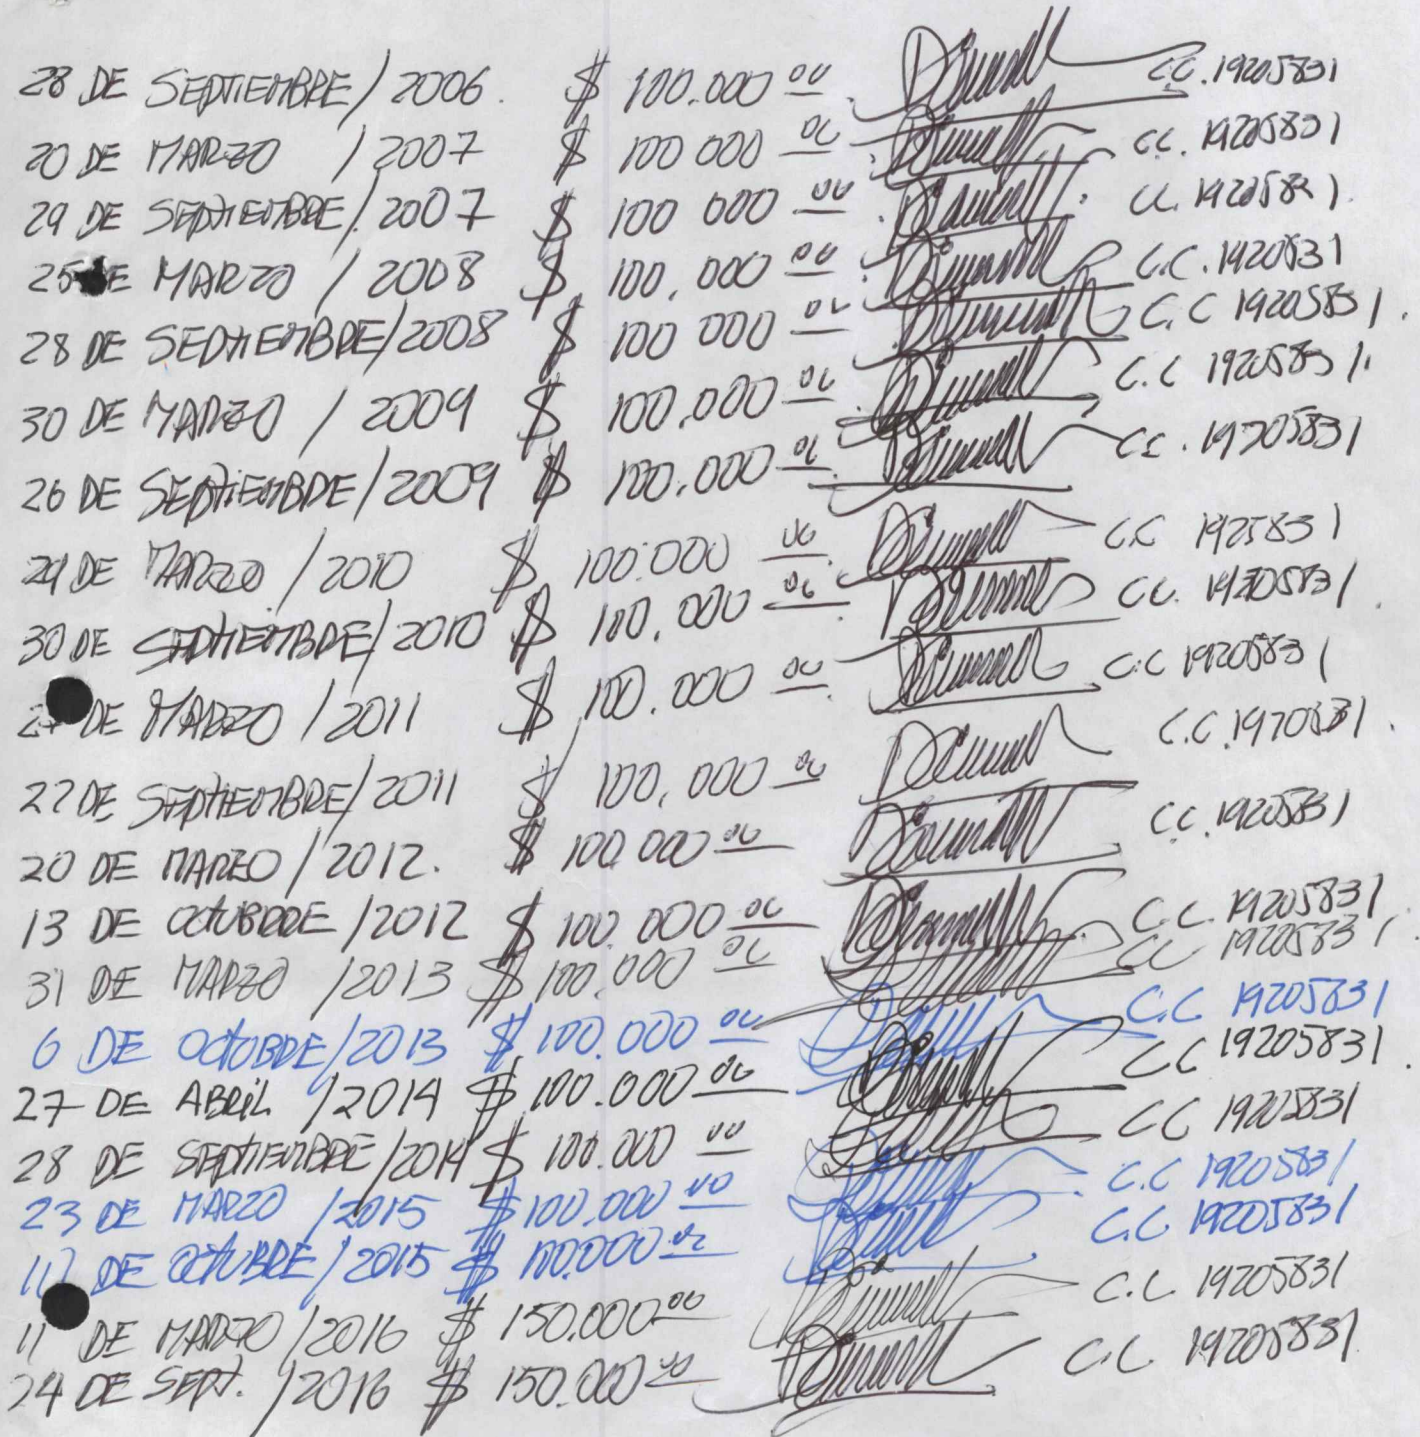 28 DE SEPTIEMBRE / 2006. $ 100.000 00 C.C. 19205831
20 DE MARZO / 2007 $ 100 000 00 CC. 19205831
29 DE SEPTIEMBRE / 2007 $ 100 000 00 CC. 19205831.
25 DE MARZO / 2008 $ 100.000 00 C.C. 1920831
28 DE SEPTIEMBRE / 2008 $ 100 000 00 C.C 19205831.
30 DE MARZO / 2009 $ 100.000 00 C.C 19205831.
26 DE SEPTIEMBRE / 2009 $ 100.000 00 CC. 19205831
29 DE MARZO / 2010 $ 100.000 00 C.C 1925831
30 DE SEPTIEMBRE / 2010 $ 100.000 00 CC. 19205831.
DE MARZO / 2011 $ 100.000 00 C.C 19205831
27 DE SEPTIEMBRE / 2011 $ 100.000 00 C.C. 1920831.
20 DE MARZO / 2012. $ 100.000 00 CC. 19205831
13 DE OCTUBRE / 2012 $ 100.000 00 C.C. 19205831
31 DE MARZO / 2013 $ 100.000 00 CC 19205831.
6 DE OCTOBRE / 2013 $ 100.000 00 C.C 19205831
27 DE ABRIL / 2014 $ 100.000 00 CC 19205831.
28 DE SEPTIEMBRE / 2014 $ 100.000 00 CC 19205831
23 DE MARZO / 2015 $ 100.000 00 C.C 19205831
DE OCTUBRE / 2015 $ 100.000 00 C.C 19205831
11 DE MARZO / 2016 $ 150.000 00 C.C. 19205831
24 DE SEPT. / 2016 $ 150.000 00 C.C. 19205831